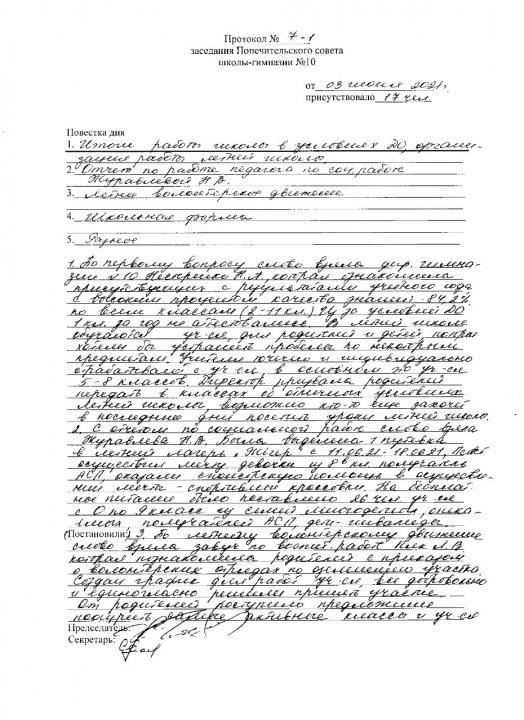 Протокол № 7-1
заседания Попечительского совета
школы-гимназии №10
от 03 июня 2021г.
присутствовало 17 чел
Повестка дня
1. Итоги работы школы в условиях ДО, органи-
зация работы летней школы
2. Отчет по работе педагога по соц.работе
Журавлевой Н.В.
3. Летнее волонтерское движение
4. Школьная форма
5. Разное
1. По первому вопросу слово взяла дир. гимна-
зии №10 Нестеренко Н.А, которая ознакомила
присутствующих с результатами учебного года
с высоким процентом качества знаний - 84,2%
по всем классам (2-11 кл.) Из за условий ДО
1 кл. за год не аттестовались. В летней школе
обучаются уч-ся, для родителей и детей, которые
хотели бы устранить пробелы по некоторым
предметам. Учителя точечно и индивидуально
отрабатывают с уч-ся, в основном это уч-ся
5-8 классов. Директор призвала родителей
передать в классах об отличных условиях
летней школы возможно кто-то еще захочет
в последние дни посетить уроки летней школы.
2. С отчетом по социальной работе слово взяла
Журавлева Н.В. Была выделена 1 путевка
в летний лагерь "Жигер" с 11.06.21 - 18.06.21,
осуществили мечту девочки из 8 кл. получатель
АСП, оказали спонсорскую помощь в осуществле-
нии мечты - спортивные кроссовки. На бесплат-
ное питание было поставлено 26 чел. уч-ся
с 0 по 9 класс из семей многодетных, опека-
емых, получателей АСП, дети-инвалиды.
(Постановили) 3. По летнему волонтерскому движению
слово взяла завуч по воспит. работе Л.В.
которая познакомила родителей с приказом
о волонтерских отрядах по озеленению участка.
Создан график для работ уч-ся, все добровольно
и единогласно решили принять участие
От родителей поступило предложение
поощрить самые активные классы и уч-ся
Председатель:
Секретарь: